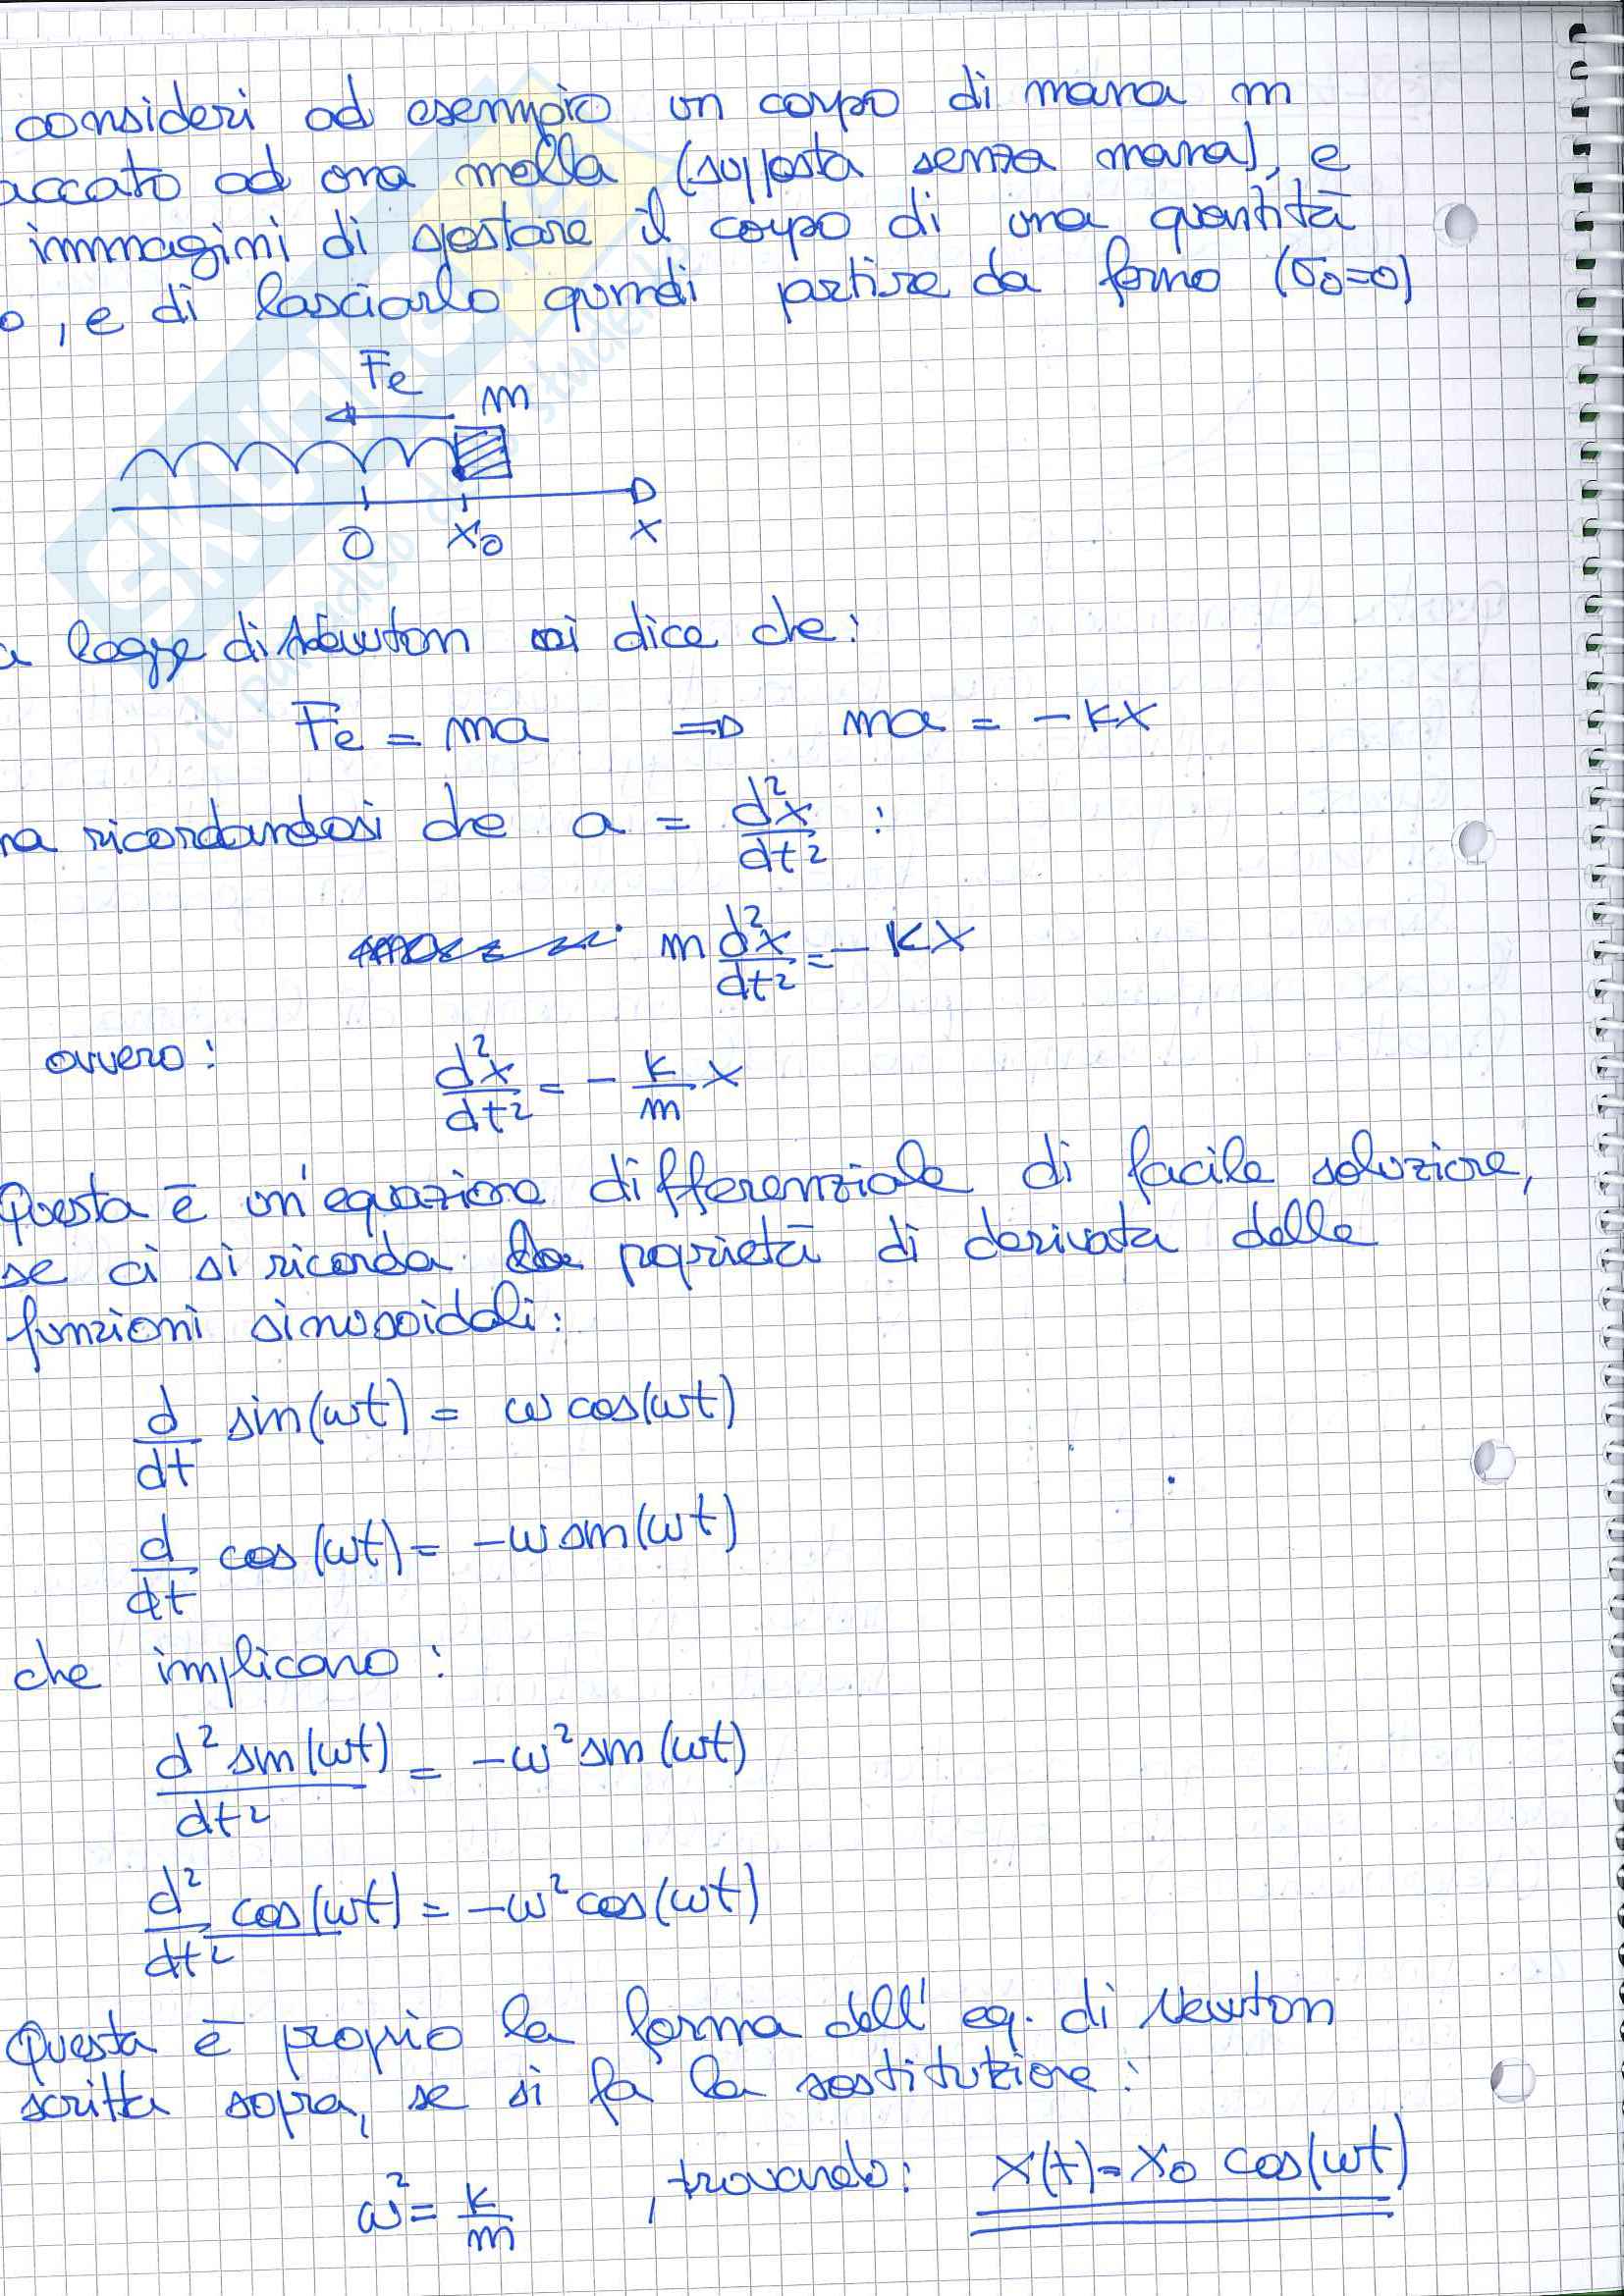 consideri ad esempio un corpo di massa m
accato ad una molla (supposta senza massa), e
immagini di spostare il corpo di una quantità
o, e di lasciarlo quindi partire da fermo (v₀=0)
Fe
m
0 x₀ x
a legge di Newton ci dice che:
Fe = ma ⇒ ma = -kx
ma ricordandosi che a = d²x/dt² :
m d²x/dt² = -kx
ovvero: d²x/dt² = - k/m x
Questa è un'equazione differenziale di facile soluzione,
se ci si ricorda la poprietà di derivata delle
funzioni sinusoidali:
d/dt sin(ωt) = ω cos(ωt)
d/dt cos(ωt) = -ω sin(ωt)
che implicano:
d² sin(ωt)/dt² = -ω² sin(ωt)
d²/dt² cos(ωt) = -ω² cos(ωt)
Questa è proprio la forma dell'eq. di Newton
scritta sopra, se si fa la sostituzione:
ω² = k/m , trovando: x(t) = x₀ cos(ωt)